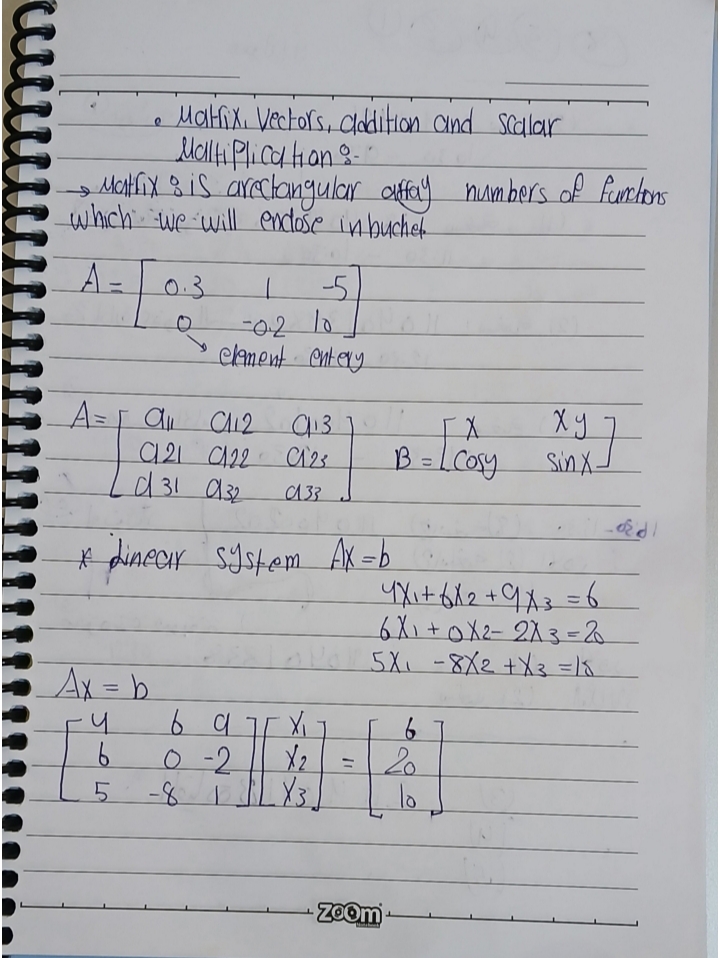 • Matrix, Vectors, addition and scalar
Maltiplication :-
→ Matrix : is arectangular array numbers of functions
which we will enclose in bucket
A = [ 0.3 1 -5
0 -0.2 10 ]
↘ element entery
A = [ a11 a12 a13
a21 a22 a23
a31 a32 a33 ]
B = [ x xy
cosy sinx ]
* Linear system Ax = b
4x1 + 6x2 + 9x3 = 6
6x1 + 0x2 - 2x3 = 20
5x1 - 8x2 + x3 = 10
Ax = b
[ 4 6 9 ] [ x1 ] [ 6 ]
[ 6 0 -2 ] [ x2 ] = [ 20 ]
[ 5 -8 1 ] [ x3 ] [ 10 ]
ZOOM